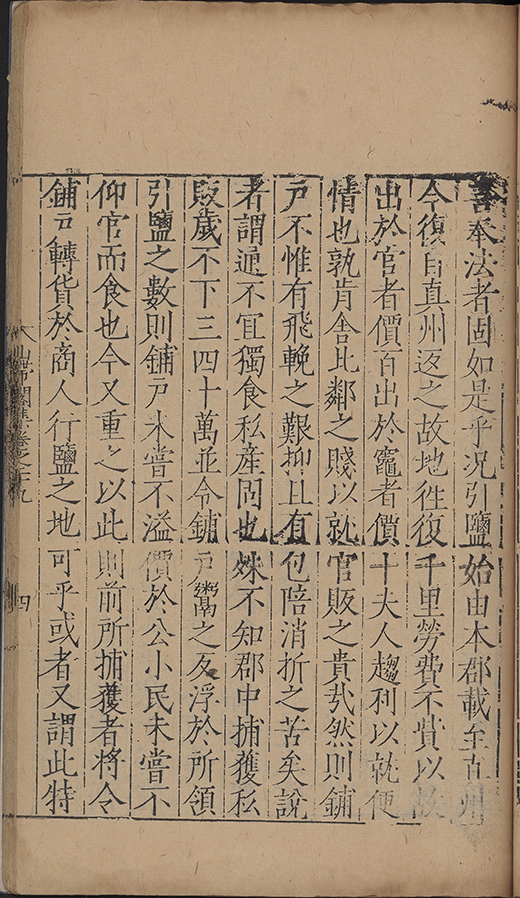 善奉法者固如是乎況引鹽始由本郡載至真州
今復自真州返之故地往復千里勞費不貲以故
出於官者價百出於竈者價十夫人趨利以就便
情也孰肯舍比鄰之賤以就官販之貴㢤然則鋪
戸不惟有飛輓之艱抑且有包陪消折之苦矣說
者謂通不宜獨食私產固也殊不知郡中捕獲私
販歲不下三四十萬並令鋪戸鬻之反浮於所領
引鹽之數則鋪戸未嘗不溢價於公小民未嘗不
仰官而食也今又重之以此則前所捕獲者將令
鋪戸轉貨於商人行鹽之地可乎或者又謂此特
卷之十九
四